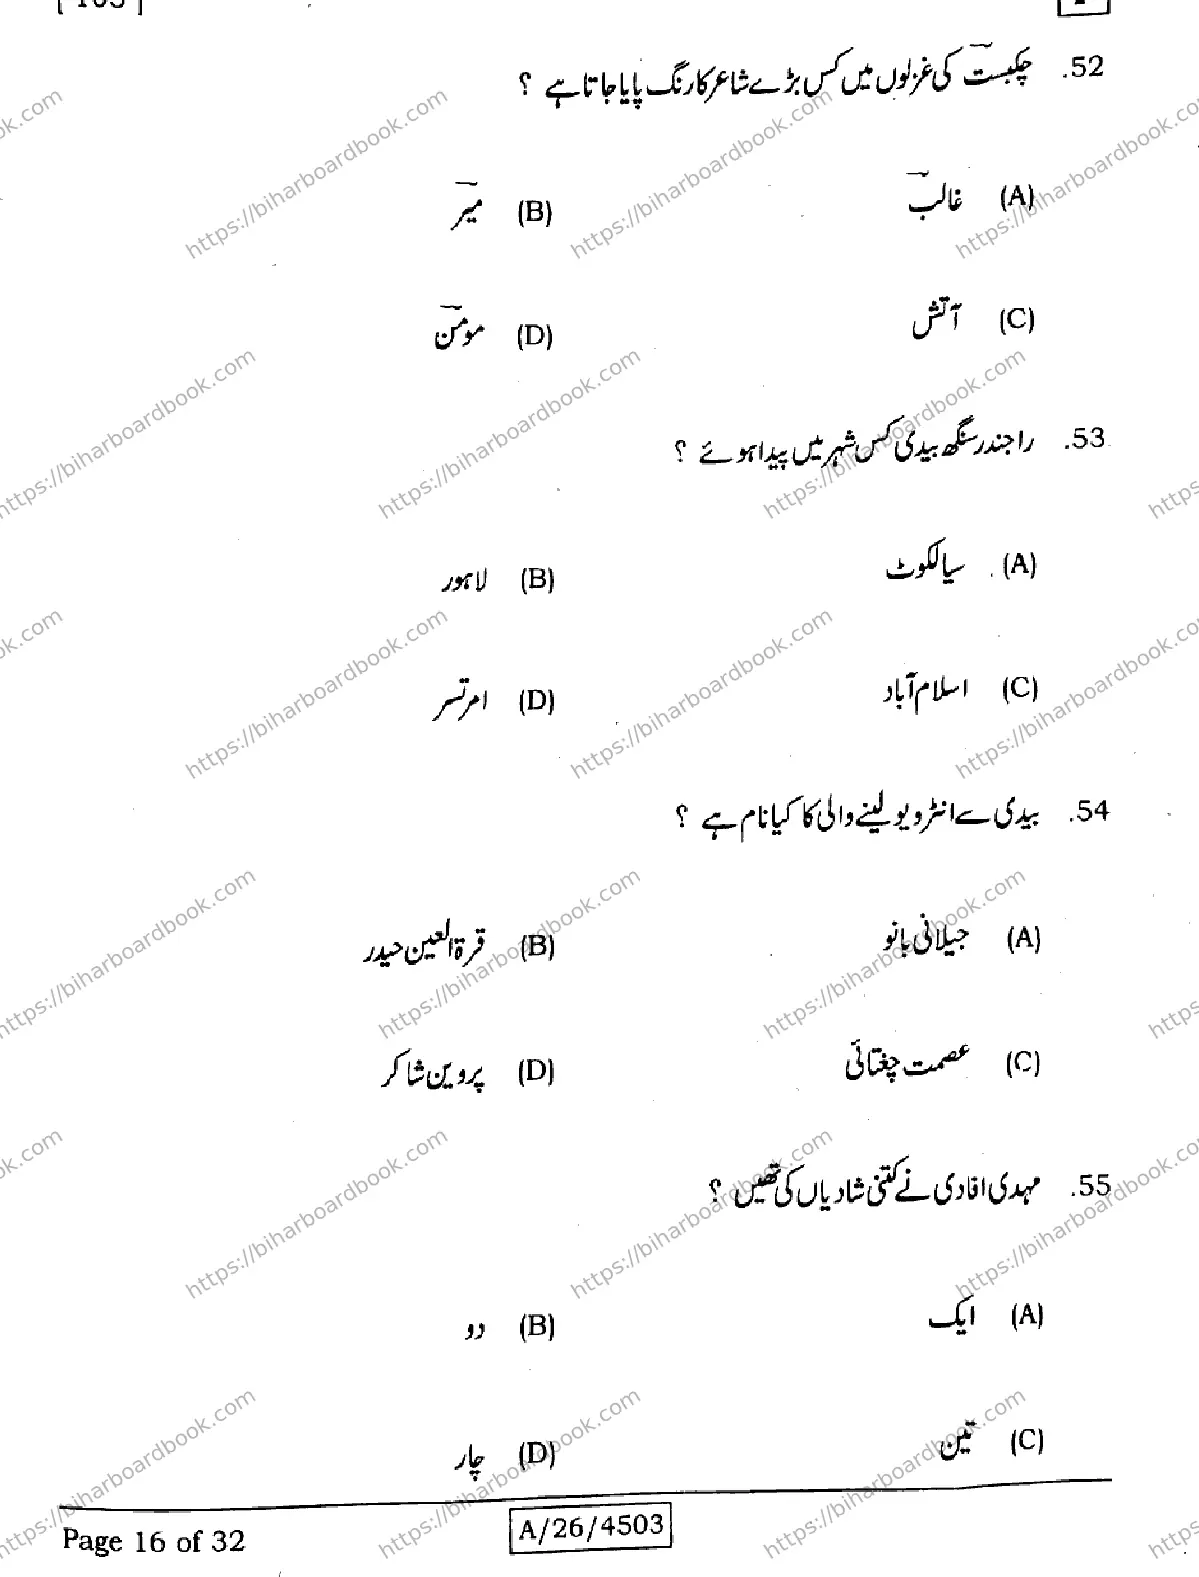 [ 103 ]
52. چکبست کی غزلوں میں کس بڑے شاعر کا رنگ پایا جاتا ہے ؟
(A) غالب (B) میر
(C) آتش (D) مومن
53. راجندر سنگھ بیدی کس شہر میں پیدا ہوئے ؟
(A) سیالکوٹ (B) لاہور
(C) اسلام آباد (D) امرتسر
54. بیدی سے انٹرویو لینے والی کا کیا نام ہے ؟
(A) جیلانی بانو (B) قرۃ العین حیدر
(C) عصمت چغتائی (D) پروین شاکر
55. مہدی افادی نے کتنی شادیاں کی تھیں ؟
(A) ایک (B) دو
(C) تین (D) چار
Page 16 of 32
A/26/4503
https://biharboardbook.com